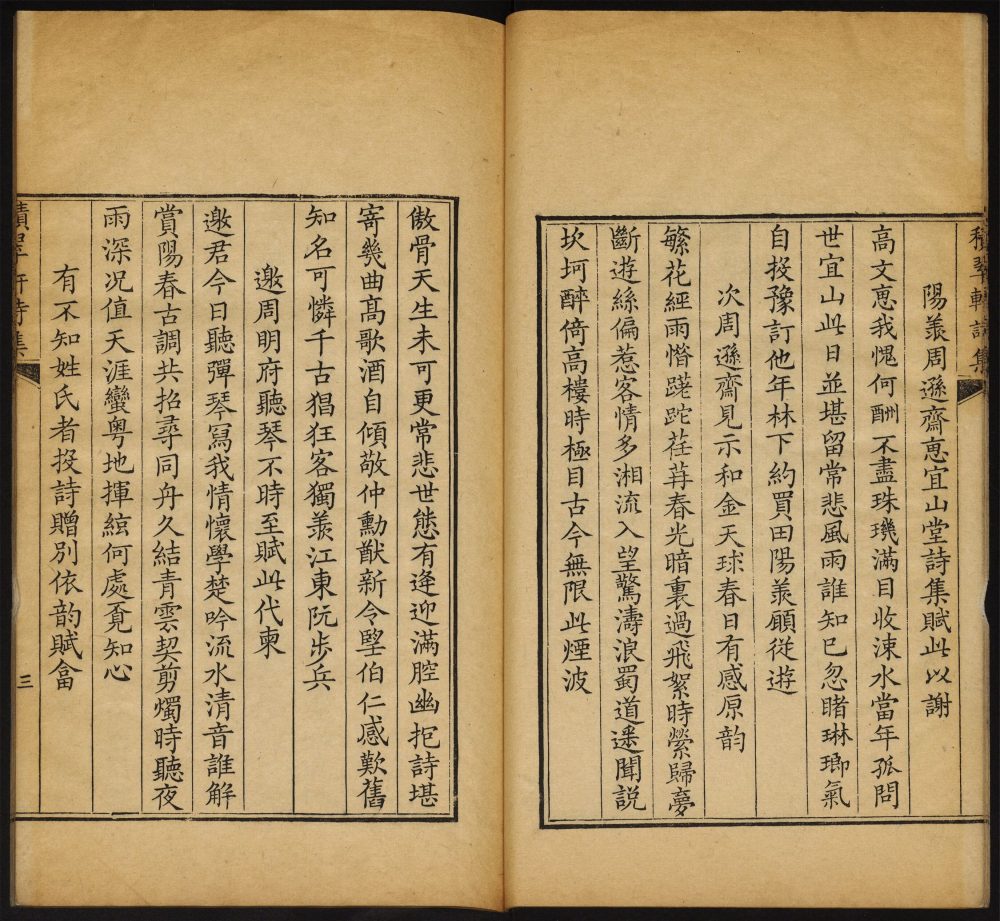 積翠軒詩集
陽羨周遜齋惠宜山堂詩集賦此以謝
高文惠我愧何酬不盡珠璣滿目收涑水當年孤問
世宜山此日並堪留常悲風雨誰知己忽睹琳瑯氣
自投豫訂他年林下約買田陽羨願從遊
次周遜齋見示和金天球春日有感原韵
繁花經雨惜蹉跎荏苒春光暗裏過飛絮時縈歸夢
斷遊絲偏惹客情多湘流入望驚濤浪蜀道遙聞説
坎坷醉倚高樓時極目古今無限此煙波
傲骨天生未可更常悲世態有逢迎滿腔幽抱詩堪
寄幾曲高歌酒自傾敬仲勳猷新令堅伯仁感歎舊
知名可憐千古猖狂客獨羨江東阮步兵
邀周明府聽琴不時至賦此代柬
邀君今日聽彈琴寫我情懷學楚吟流水清音誰解
賞陽春古調共招尋同舟久結青雲契剪燭時聽夜
雨深况值天涯蠻粵地揮絃何處覔知心
有不知姓氏者投詩贈別依韵賦畣
積翠軒詩集
三